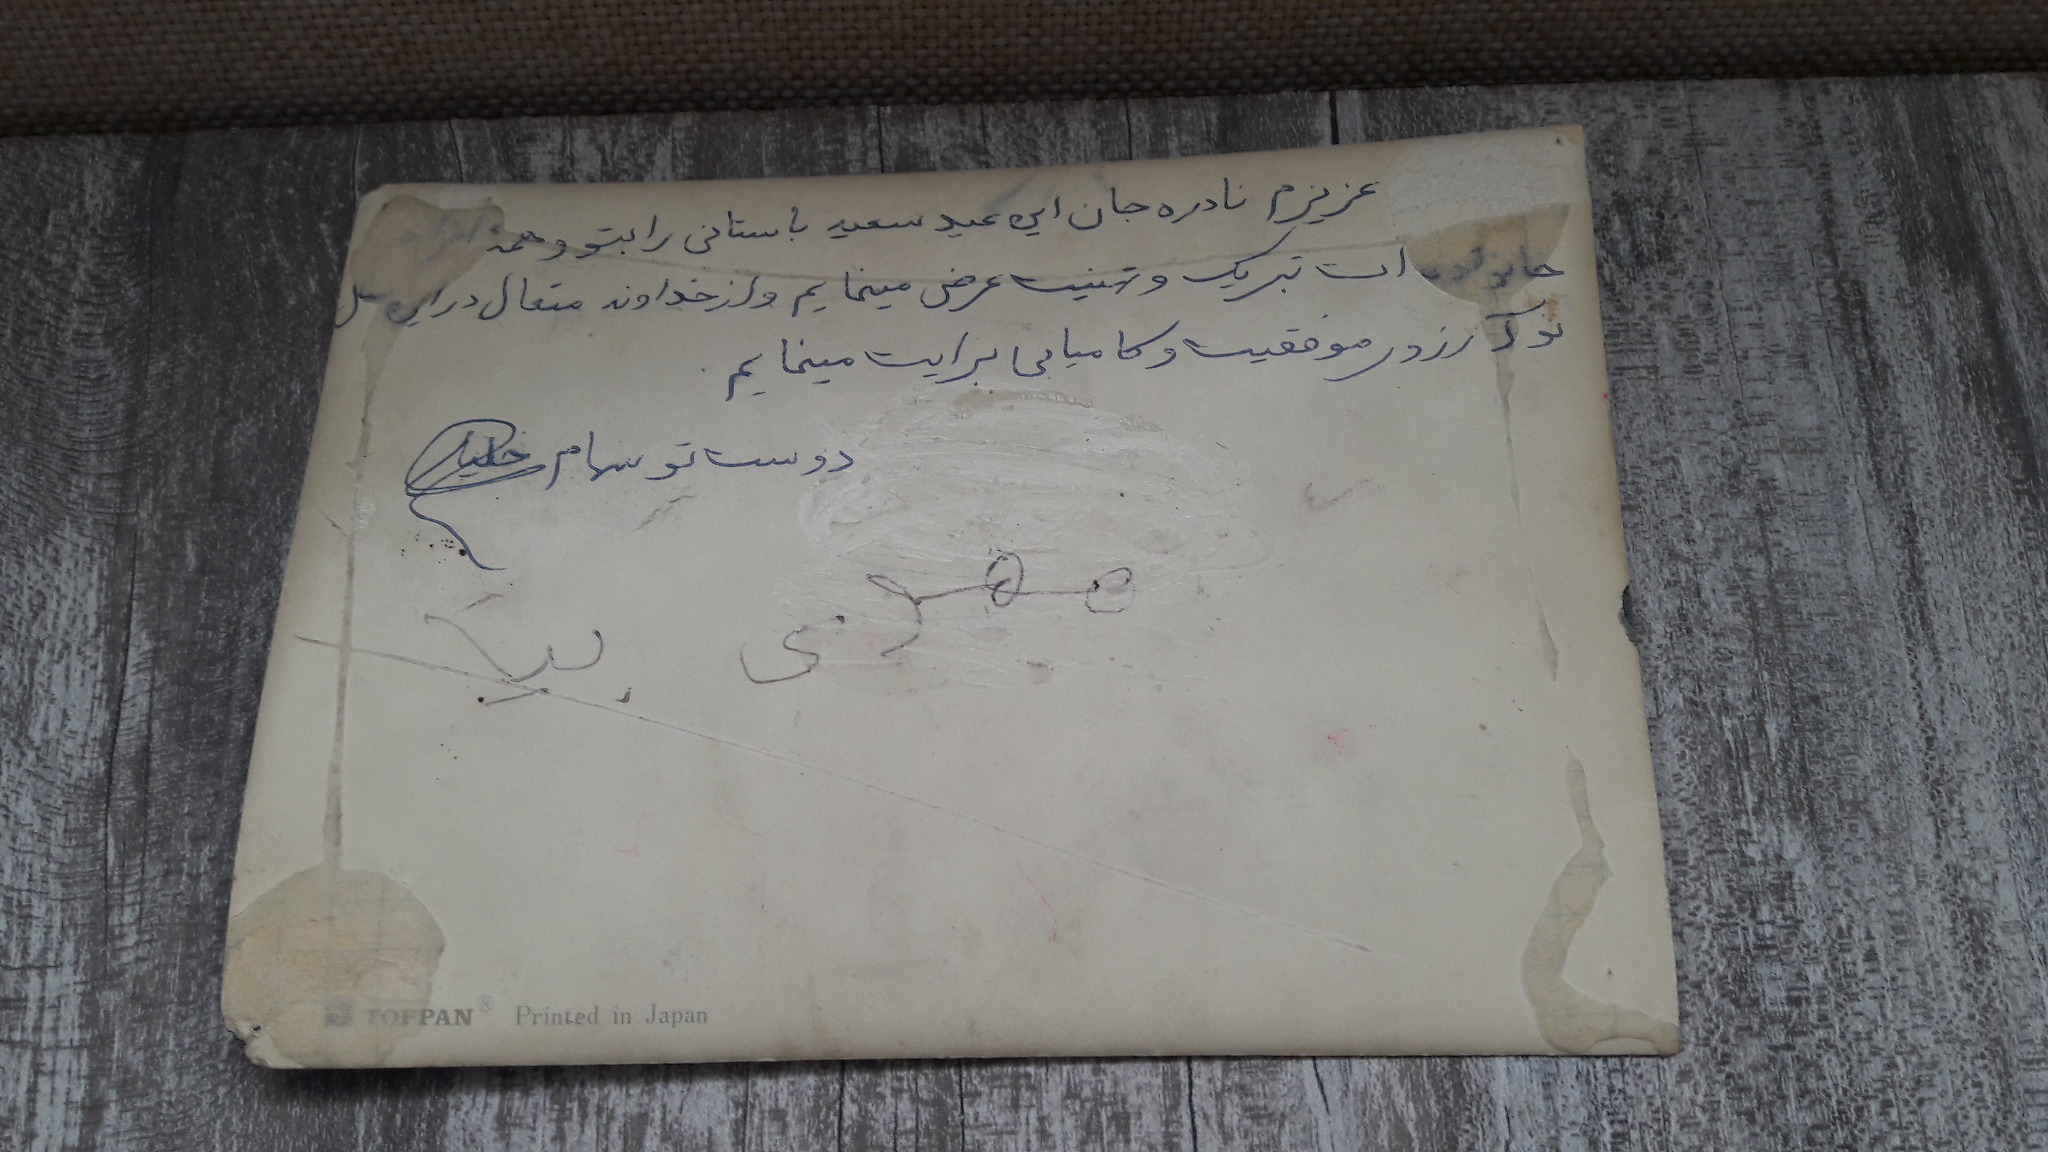 عزیزم نادره جان این عید سعید باستانی را بتو و همه افراد
خانواده ات تبریک و تهنیت عرض مینمایم و از خداوند متعال در این سال
نو آرزوی موفقیت و کامیابی برایت مینمایم
دوست تو سهام
مهدی بیک
TOPPAN® Printed in Japan